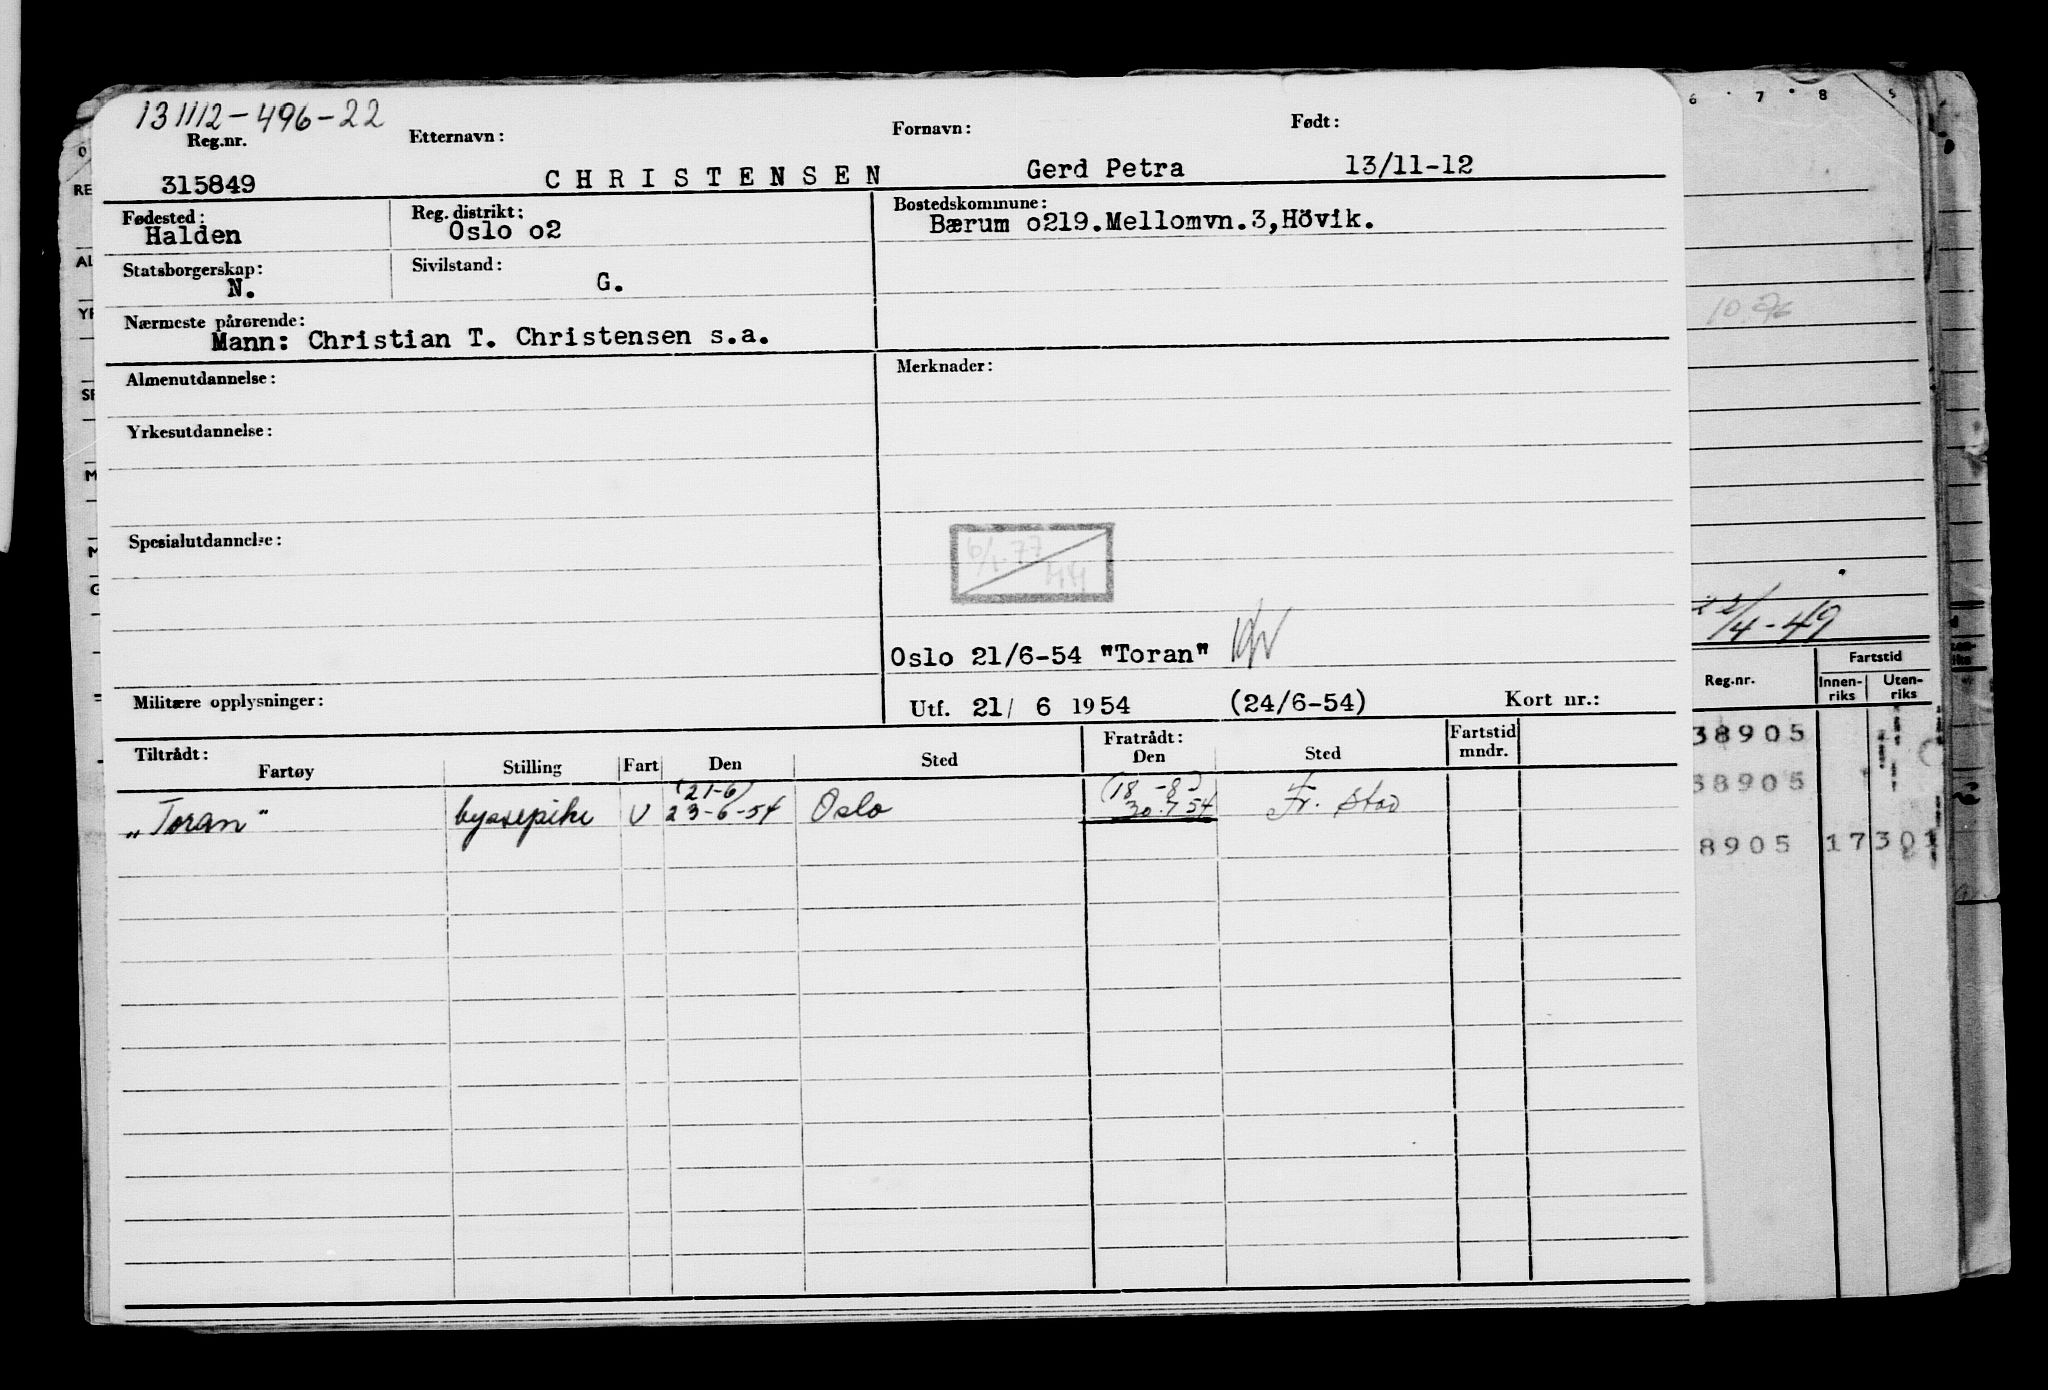 131112-496-22
Reg.nr. Etternavn: Fornavn: Født:
315849 CHRISTENSEN Gerd Petra 13/11-12
Fødested: Reg. distrikt: Bostedskommune:
Halden Oslo o2 Bærum o219.Mellomvn.3,Hövik.
Statsborgerskap: Sivilstand:
N. G.
Nærmeste pårørende:
Mann: Christian T. Christensen s.a.
Almenutdannelse: Merknader:
Yrkesutdannelse:
Spesialutdannelse:
6/1.77
Oslo 21/6-54 "Toran"
Militære opplysninger: Utf. 21/ 6 1954 (24/6-54) Kort nr.:
Tiltrådt: Fratrådt: Fartstid
Fartøy Stilling Fart Den Sted Den Sted mndr.
(21-6) (18 -8)
„Toran" byssepike U 23-6-54 Oslo 30.7 54 Fr. stad
6 7 8
10.76
/4-49
Reg.nr. Fartstid
Innen-riks Uten-riks
38905
38905
8905 17 301